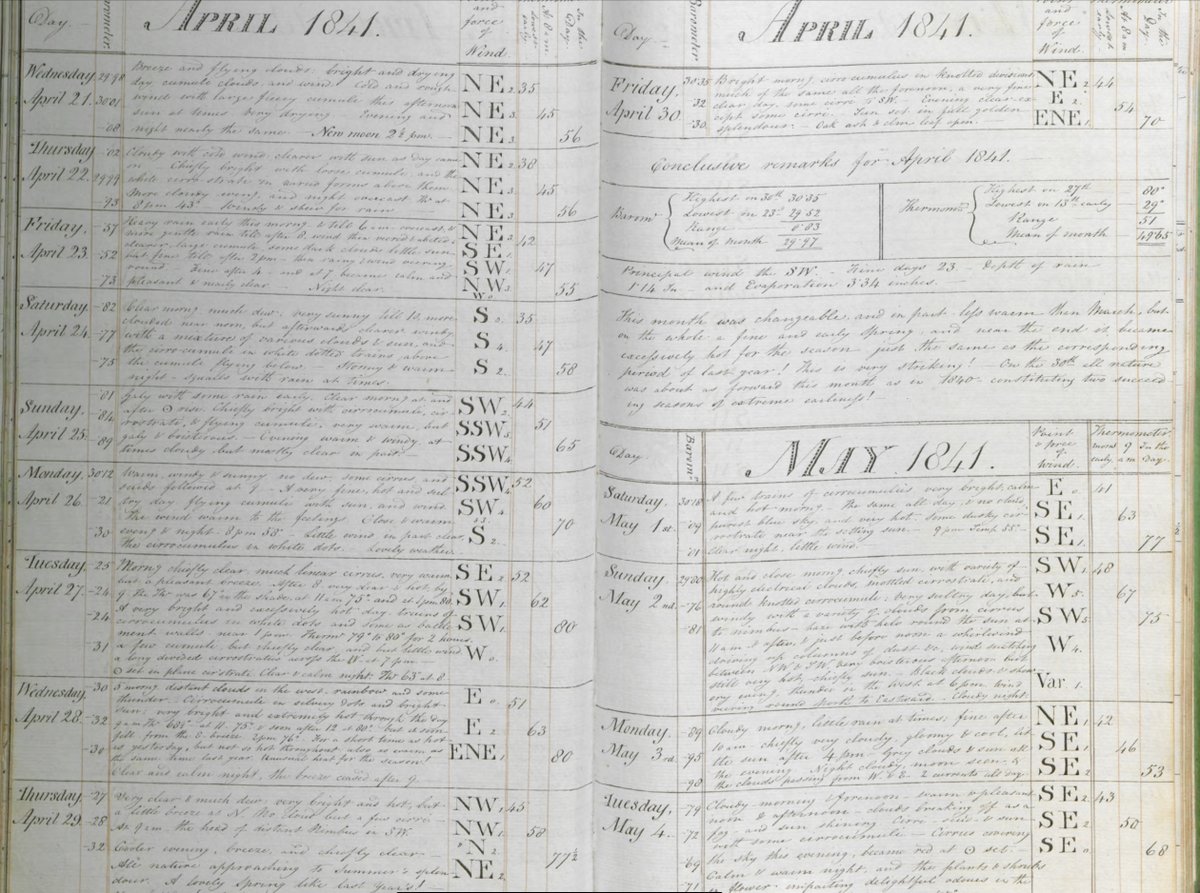 APRIL 1841.
Day.
Barometer
and force of Wind.
lowest early
At 8 a m
In the Day.
Wednesday 29·98 Breeze and flying clouds, bright and drying NE 2 35
day cumule clouds, and wind. Cold and rough
April 21. 30·01 wind with large fleecy cumule this afternoon NE 3 45
sun at times Very drying Evening and
·08 night nearly the same — New moon NE 3 56
Thursday ·02 Cloudy with cold wind, clearer with sun as day came NE 2 38
on Chiefly bright with loose cumule, and the
April 22. 29·99 while cirrostrata in forms above them NE 3 45
More cloudy eveng and night overcast Thr at
·93 8 pm 43° Windy & sheer for rain NE 3 56
Friday ·57 Heavy rain early this morng & till 6 am overcast & NE 2 42
more gentle rain till after 12 wind then
clearer, large cumule upon dark clouds little sun SE 1
April 23. ·52 but fine till after 2 pm — then rainy & wind veering SW 1 47
round — Fine after 4 — and at 7 became calm and
·73 pleasant & mostly clear — Night clear. NW 3 55
W 0
Saturday ·82 Clear morng much dew, very sunny till 10, more S 0 35
clouded near noon, but afterwards clearer windy
April 24. ·77 with a mixture of various clouds & sun, and S 4 47
the cirrocumule in white dotted trains above
·75 the cumule flying below — Stormy & warm S 2 58
night — squalls with rain at times.
Sunday ·81 Galy with some rain early Clear morng at and SW 2 44
after ☉ rise. Chiefly bright with cirrocumule, cir
·84 rostrate, & flying cumule, very warm, but SSW 5 51
April 25. galy & boisterous — Evening warm & windy at
·89 times cloudy but mostly clear in part — SSW 4 65
Monday 30·12 Warm windy & sunny no dew, some cirrus, and SSW 4 52
scuds followed at 9. A very fine, hot and sul
April 26. ·21 try day flying cumule with sun, and wind SW 4 60
The wind warm to the feelings Close & warm
·30 eveng & night. 8 pm 58° Little wind in part clear, S 2 70
the cirrocumulies in white dots. Lovely weather
Tuesday ·25 Morng chiefly clear, much linear cirrus, very warm SE 2 52
but a pleasant breeze. After 8 very clear & hot, by
April 27. ·24 9 the Thr was 67° in the shade, at 11 am 75° and at 1 pm 80. SW 1 62
A very bright and excessively hot day, trains of
·24 cirrocumulus in white dots and some as battle SW 1 80
ment walls near 1 pm. Therm 79° to 80° for 2 hours,
·31 a few cumule, but chiefly clear, and but little wind W 0
a long divided cirrostratus across the W at 7 pm —
☉ set in plane cirstrate. Clear & calm night. Thr 63° at 8
Wednesday ·30 morng distant clouds in the west, rainbow and some E 0 51
thunder. Cirrocumule in silvery dots and bright
April 28. ·32 Sun, very bright and extremely hot through the day E 2 63
9 am Thr 68½° at 11. 75° & soon after 12 at 80° but it soon
fell from the E breeze 2 pm 76° For a short time as hot
·30 as yesterday, but not so hot throughout, also as warm as ENE 1 80
the same time last year. Unusual heat for the season!
Clear and calm night, the breeze ceased after 9.
Thursday ·27 Very clear & much dew, very bright and hot, but NW 1 45
a little breeze at N. No cloud but a few cirro
April 29. ·28 st 9 am, the head of distant Nimbus in SW. NW 1 58
·32 Cooler evening, breeze, and chiefly clear — N 2 77½
All nature approaching to Summer's splen NE 2
dour. A lovely Spring like last Year's! —
APRIL 1841.
Day.
Barometer
and force of Wind.
lowest early
At 8 a m
In the Day.
Friday, 30·35 Bright morng, cirrocumulies in Knotted divisions NE 2 44
much of the same all the forenoon, a very fine
·32 clear day, some cirro SW. Evening clear ex E 2 54
April 30. cept some cirro — Sun set in full golden
·30 splendour — Oak ash & elm leaf open. ENE 1 70
Conclusive remarks for April 1841. —
Barom Highest on 30th 30·35
Lowest on 23d 29·52
Range — 0·83
Mean of Month 29·97
Thermomr Highest on 27th 80°
Lowest on 13th early — 29°
Range 51
Mean of month — 49·65
Principal wind the SW. Fine days 23 — Depth of rain
1·14 In — and Evaporation 3·34 inches. —
This month was changeable, and in part less warm then March, but
on the whole a fine and early Spring, and near the end it became
excessively hot for the season — just the same as the corresponding
period of last year! This is very striking! — On the 30th all nature
was about as forward this month as in 1840 — constituting two succeed
ing seasons of extreme earliness! —
Day
Baromr
MAY 1841.
Point & force of Wind.
Thermometer
morng early
9 am
In the Day.
Saturday, 30·18 A few trains of cirrocumulus, very bright, calm E 0 41
and hot morng. The same all day & no cloud,
May 1st. ·09 purest blue sky and very hot. Some dusky cir SE 1 63
rostrate near the setting sun. 9 pm Temp 55°
·01 Clear night, little wind SE 1 77
Sunday 29·80 Hot and close morng chiefly sun, with variety of SW 1 48
highly electrical clouds, mottled cirrostrate, and
May 2nd. ·76 round knotted cirrocumule; Very sultry day, but W 5 67
windy with a variety of clouds from cirrus
·81 to nimbus — haze with halo round the sun at SW 5 75
11 am & after, & just before noon a whirlwind
drawing up columns of dust &c, wind switching W 4
between NW & SW, very boisterous afternoon but
still very hot, chiefly sun. Black clouds & show
ery eveng, thunder in the West at 6 pm, wind Var 1.
veering round North to Eastward. Cloudy night
Monday. ·89 Cloudy morng, little rain at times; fine after NE 1 42
10 am chiefly very cloudy, gloomy & cool, till
May 3rd. ·95 the sun after 4 pm Grey clouds & sun all SE 1 46
the evening Night cloudy, moon seen, &
·98 the clouds passing from W & E. 2 currents all day. SE 2 53
Tuesday ·79 Cloudy morning & forenoon — warm & pleasant SE 2 43
noon & afternoon — clouds breaking off as a
May 4. ·72 fog — and sun shining Cirro- & sun SE 2 50
with some cirrocumule — Cirrus covering
·69 the sky this evening, became red at ☉ set — SE 0 68
Calm & warm night, and the plants & shrubs
·71 in flower imparting delightful odours in the